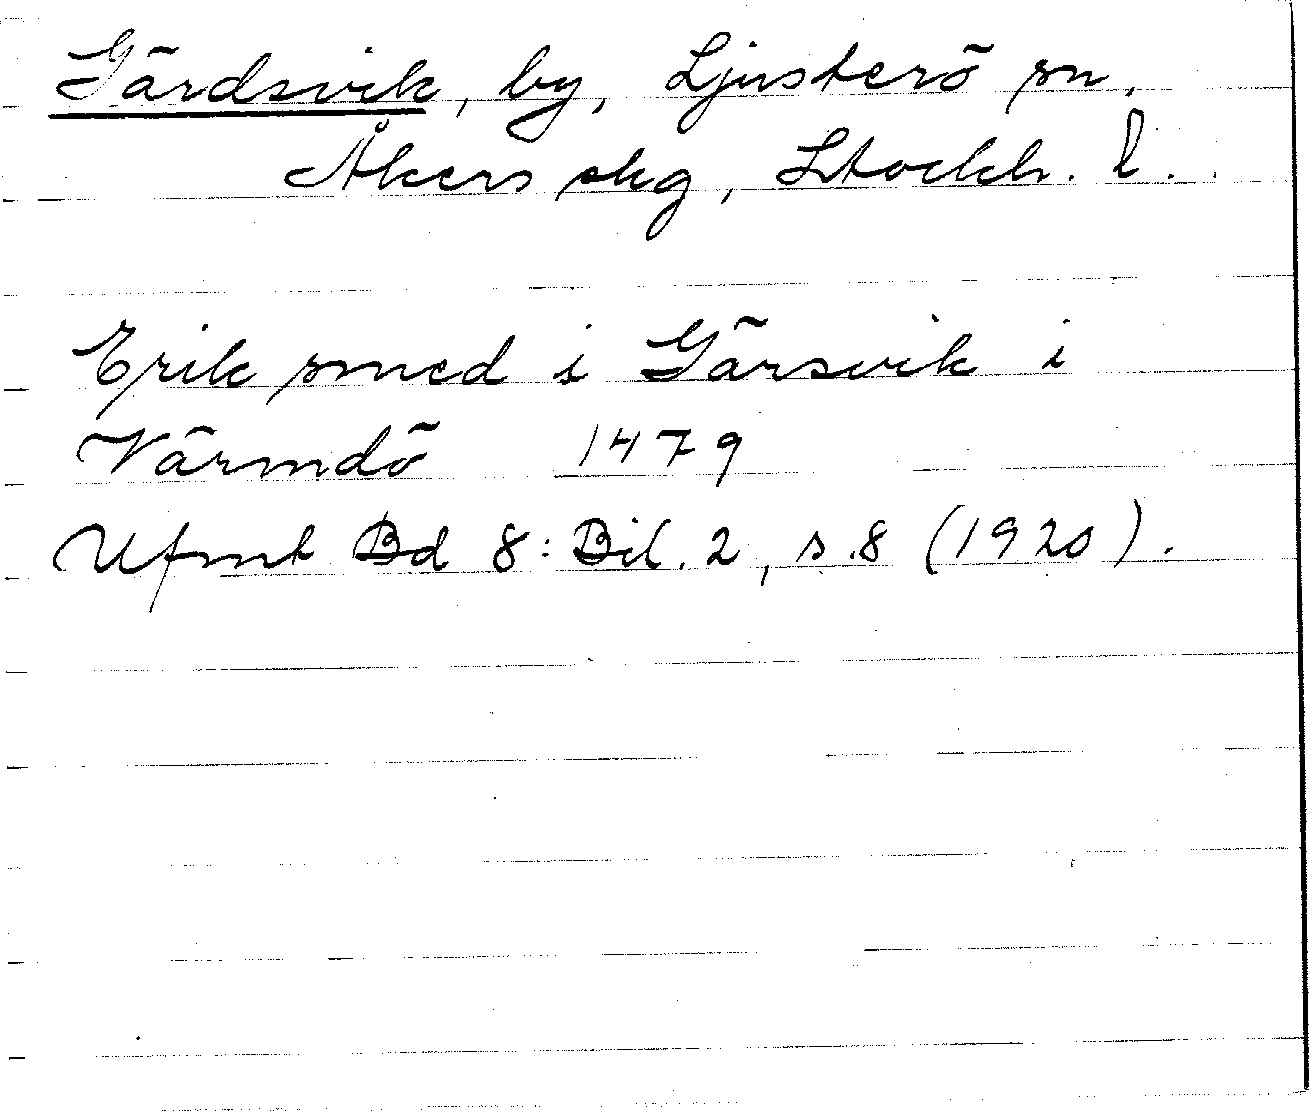 Gärdsvik, by, Ljusterö sn,
Åkers skg, Stockh. l.
Erik smed i Gärsvik i
Värmdö 1479
Ufmt Bd 8: Bil. 2, s. 8 (1920).